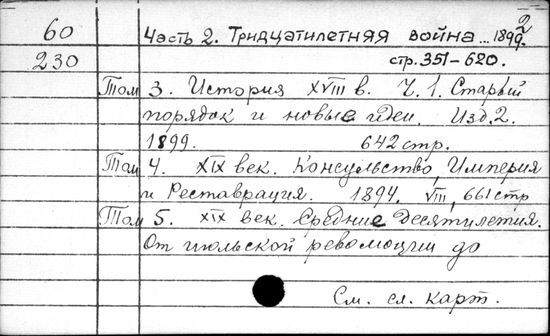 60 Часть 2. Тридцатилетняя война ... 1899.
230 стр. 351-620.
Том 3. История XVIII в. Ч. 1. Старый
порядок и новые идеи. Изд. 2.
1899. 642 стр.
Том 4. XIX век. Консульство, Империя
и Реставрация. 1894. VIII, 661 стр
Том 5. XIX век. Средние десятилетия.
От июльской революции до
См. сл. карт.